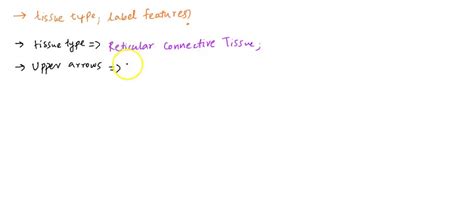 → tissue type, label features)
→ tissue type => Reticular Connective Tissue;
→ Upper arrows =>